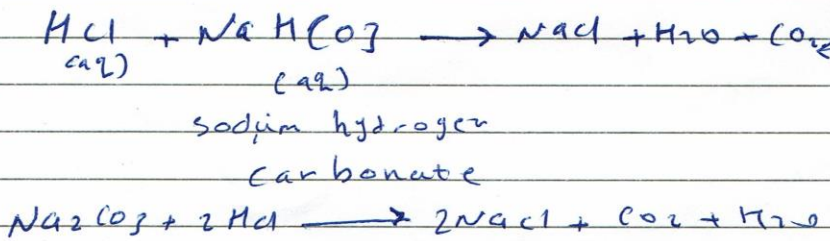 HCl + NaHCO3 → NaCl + H2O + CO2
(aq)
(aq)
sodium hydrogen
carbonate
Na2CO3 + 2HCl → 2NaCl + CO2 + H2O